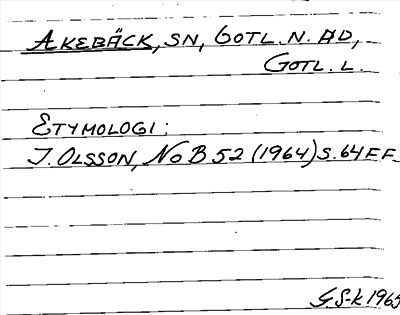 AKEBÄCK, SN, GOTL. N. HD,
GOTL. L.
ETYMOLOGI:
I. OLSSON, NoB 52 (1964) S. 64 FF.
G. S-k 1965